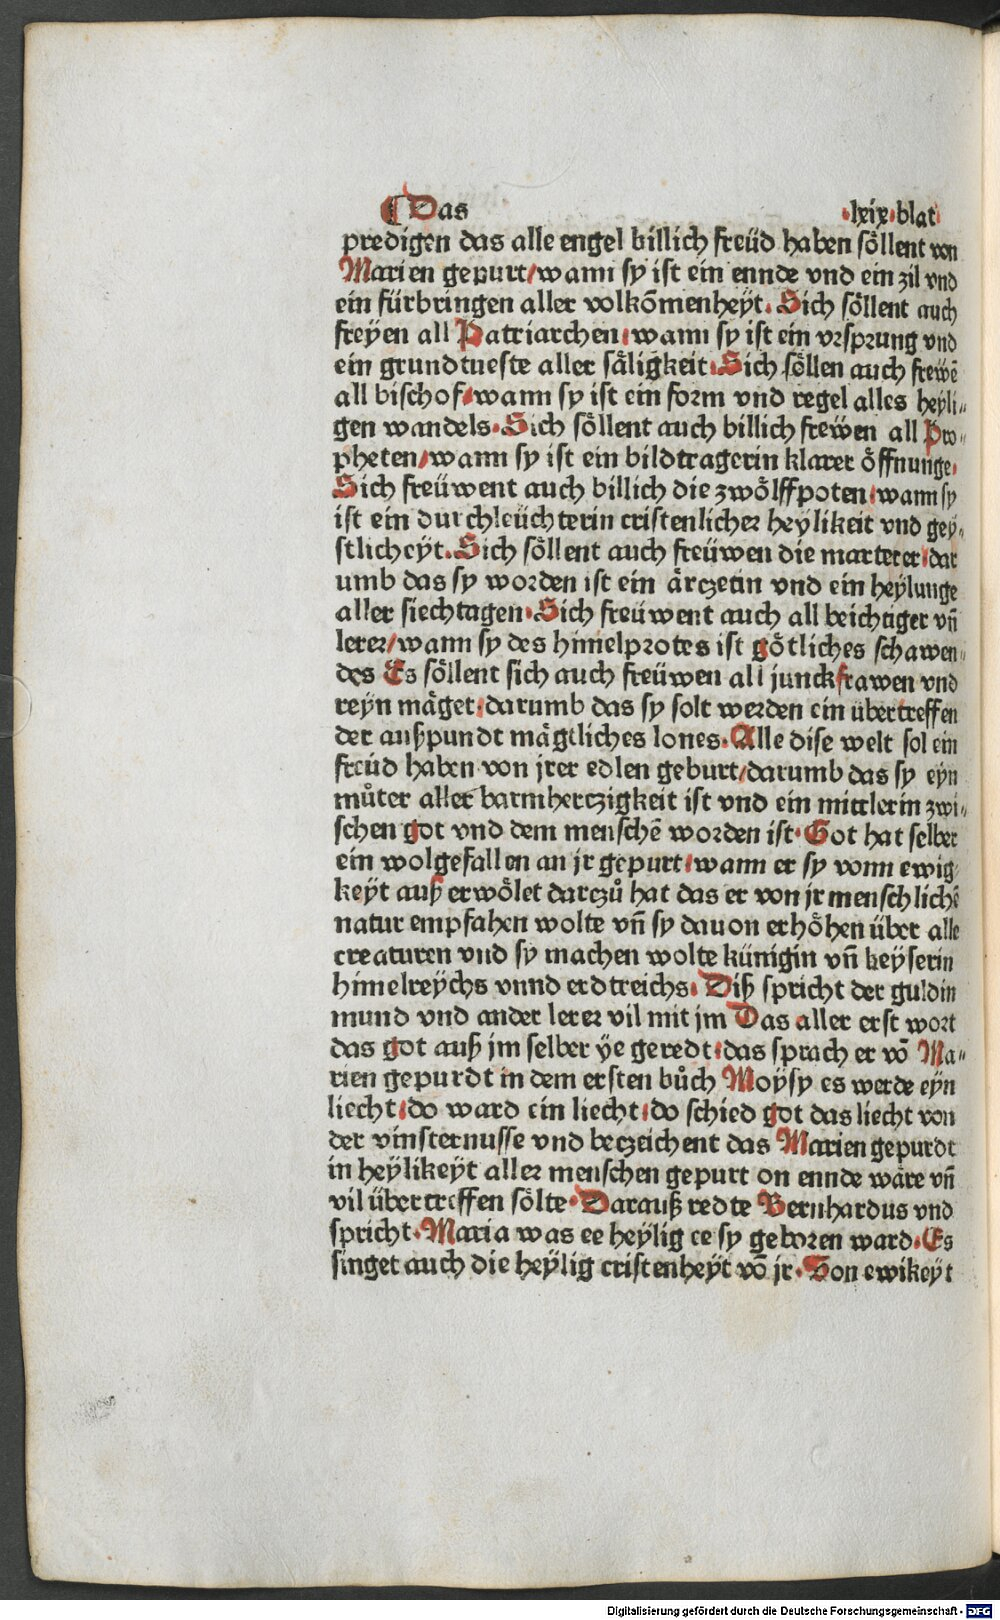 ¶ Das .lxix.blat
predigen das alle engel billich freüd haben söllent von
Marien gepurt/wann sy ist ein ennde vnd ein zil vnd
ein fürbringen aller volkōmenheyt. Sich söllent auch
freyen all Patriarchen.wann sy ist ein vrsprung vnd
ein grundtueste aller säligkeit.Sich söllen auch frewē
all bischof/wann sy ist ein form vnd regel alles heyli-
gen wandels.Sich söllent auch billich frewen all Pro-
pheten/wann sy ist ein bildtragerin klarer öffnunge.
Sich freüwent auch billich die zwölffpoten.wann sy
ist ein durchleüchterin cristenlicher heylikeit vnd gey-
stlicheyt.Sich söllent auch freüwen die marterer/dar
umb das sy worden ist ein ärczetin vnd ein heylunge
aller siechtagen.Sich freüwent auch all beichtiger vñ
lerer/wann sy des himelprotes ist götliches schawen-
des Es söllent sich auch freüwen all junckfrawen vnd
reyn mäget.darumb das sy solt werden ein übertreffen
der außpundt mägtliches lones.Alle dise welt sol ein
freüd haben von jrer edlen geburt/darumb das sy eyn
můter aller barmherczigkeit ist vnd ein mittlerin zwi-
schen got vnd dem menschē worden ist.Got hat selber
ein wolgefallen an jr gepurt.wann er sy vonn ewig
keyt auß erwölet darczů hat das er von jr menschlichē
natur empfahen wolte vñ sy dauon erhöhen über alle
creaturen vnd sy machen wolte künigin vñ keyserin
himelreychs vnnd erdtreichs. Diß spricht der guldin
mund vnd ander lerer vil mit jm Das aller erst wort
das got auß jm selber ye geredt.das sprach er vō Ma-
rien gepurdt in dem ersten bůch Moysy es werde eyn
liecht.do ward ein liecht.do schied got das liecht von
der vinsternusse vnd beczeichent das Marien gepurdt
in heylikeyt aller menschen gepurt on ennde wäre vñ
vil übertreffen sölte.Darauß redte Bernhardus vnd
spricht.Maria was ee heylig ee sy geboren ward.Es
singet auch die heylig cristenheyt vō jr.Von ewikeyt
Digitalisierung gefördert durch die Deutsche Forschungsgemeinschaft - DFG